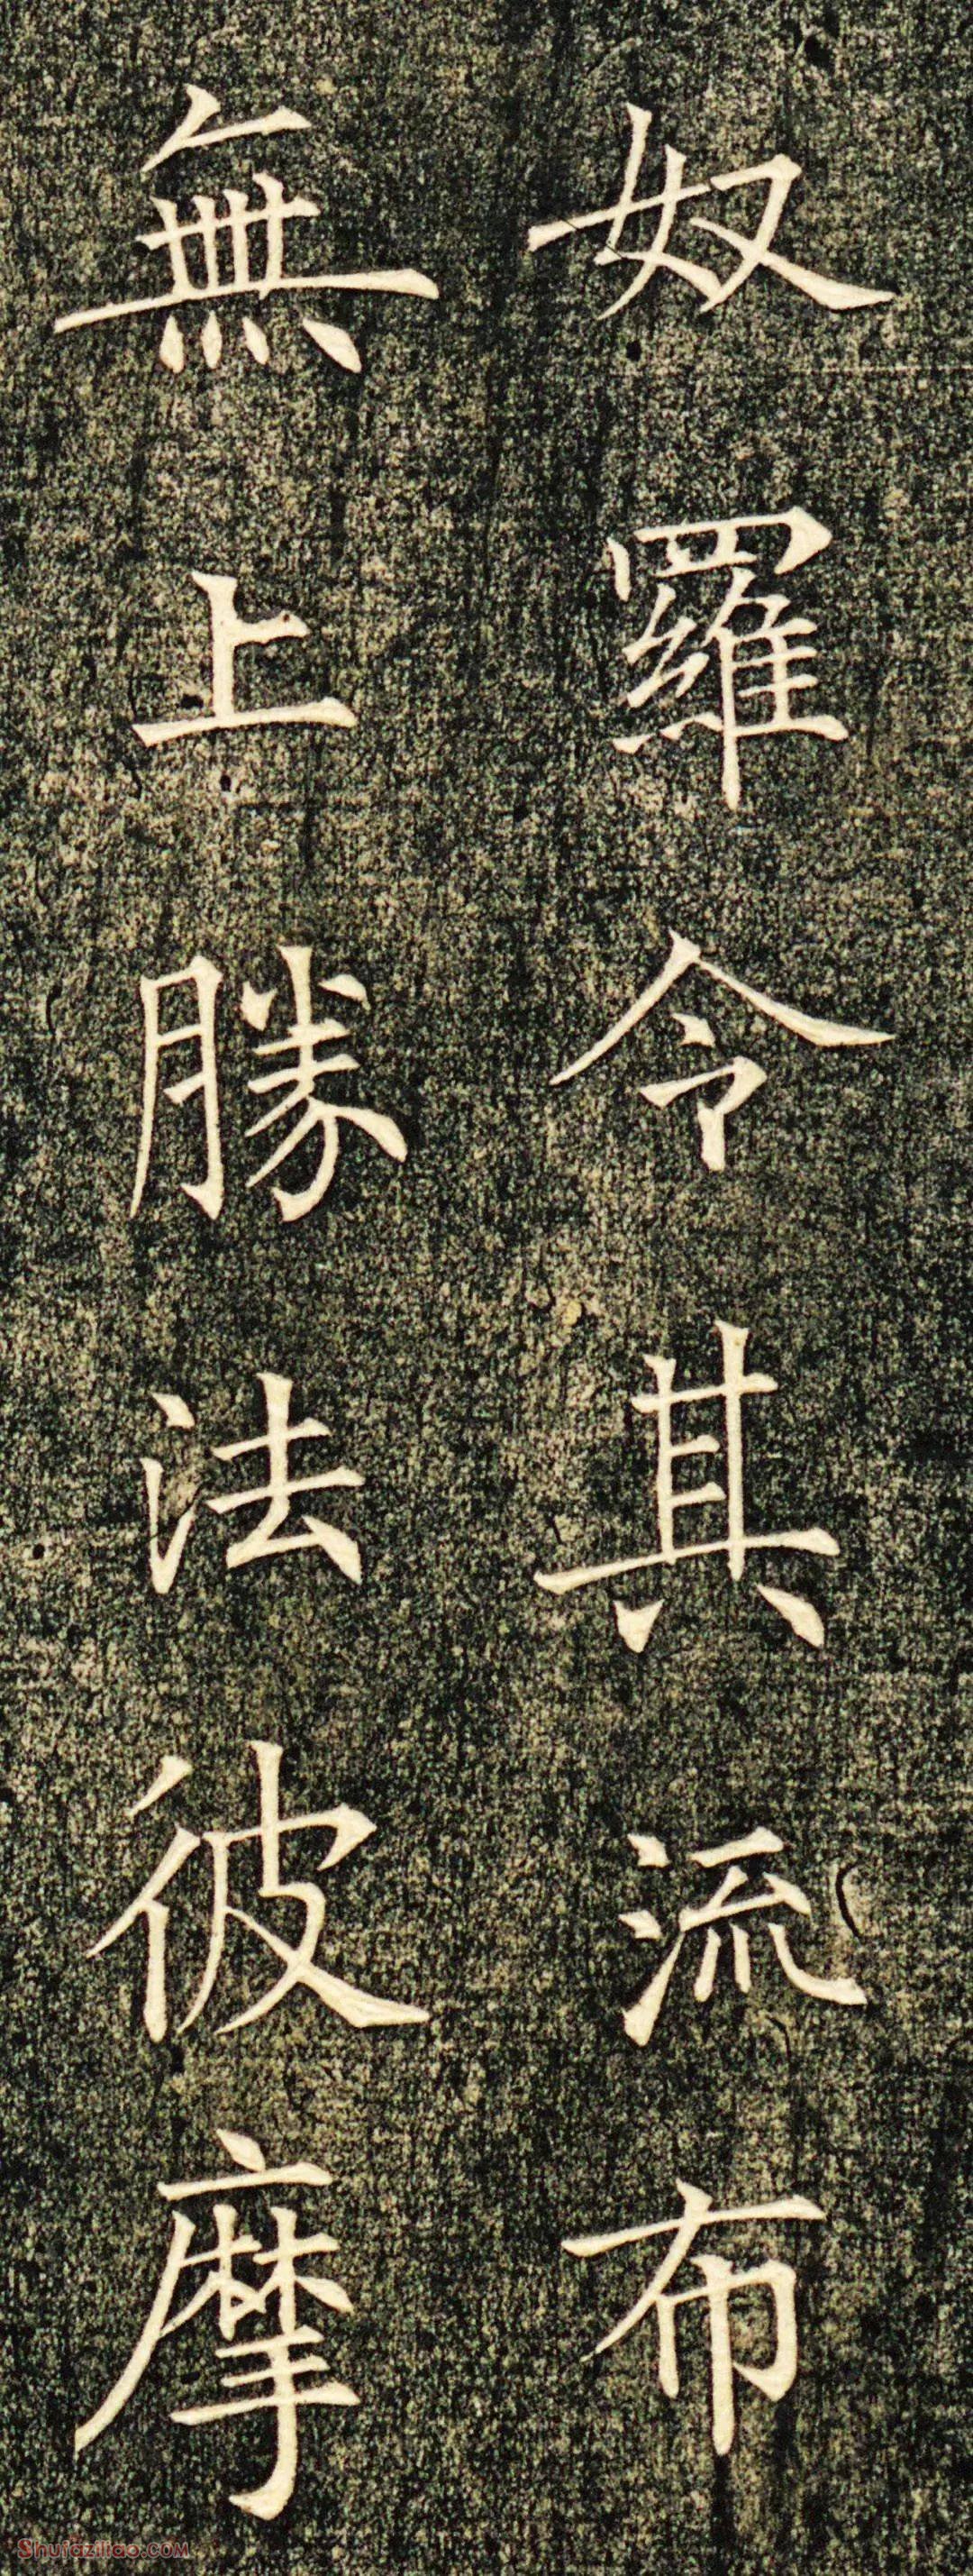 奴羅令其流布
無上勝法彼摩
Shufaziliao.COM